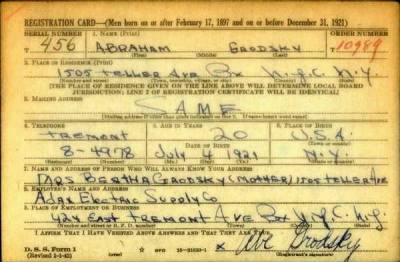 REGISTRATION CARD—(Men born on or after February 17, 1897 and on or before December 31, 1921)
SERIAL NUMBER 1. NAME (Print) ORDER NUMBER
T 456 ABRAHAM GRODSKY 10989
(First) (Middle) (Last)
2. PLACE OF RESIDENCE (Print)
1505 TELLER AVE BX N.Y.C. N.Y.
(Number and street) (Town, township, village, or city) (County) (State)
[THE PLACE OF RESIDENCE GIVEN ON THE LINE ABOVE WILL DETERMINE LOCAL BOARD
JURISDICTION; LINE 2 OF REGISTRATION CERTIFICATE WILL BE IDENTICAL]
3. MAILING ADDRESS
SAME
[Mailing address if other than place indicated on line 2. If same insert word same]
4. TELEPHONE 5. AGE IN YEARS 6. PLACE OF BIRTH
TREMONT 20 U.S.A.
DATE OF BIRTH
8-4978 July 4 1921 N.Y.
7. NAME AND ADDRESS OF PERSON WHO WILL ALWAYS KNOW YOUR ADDRESS
MRS BERTHA GRODSKY (MOTHER) 1505 TELLER AVE
8. EMPLOYER'S NAME AND ADDRESS
ADAX ELECTRIC SUPPLY CO
424 EAST TREMONT AVE BX N.Y.C. N.Y.
I AFFIRM THAT I HAVE VERIFIED ABOVE ANSWERS AND THAT THEY ARE TRUE.
D. S. S. Form 1
(Revised 1-1-42) (over) x Abe Grodsky
(Registrant's signature)